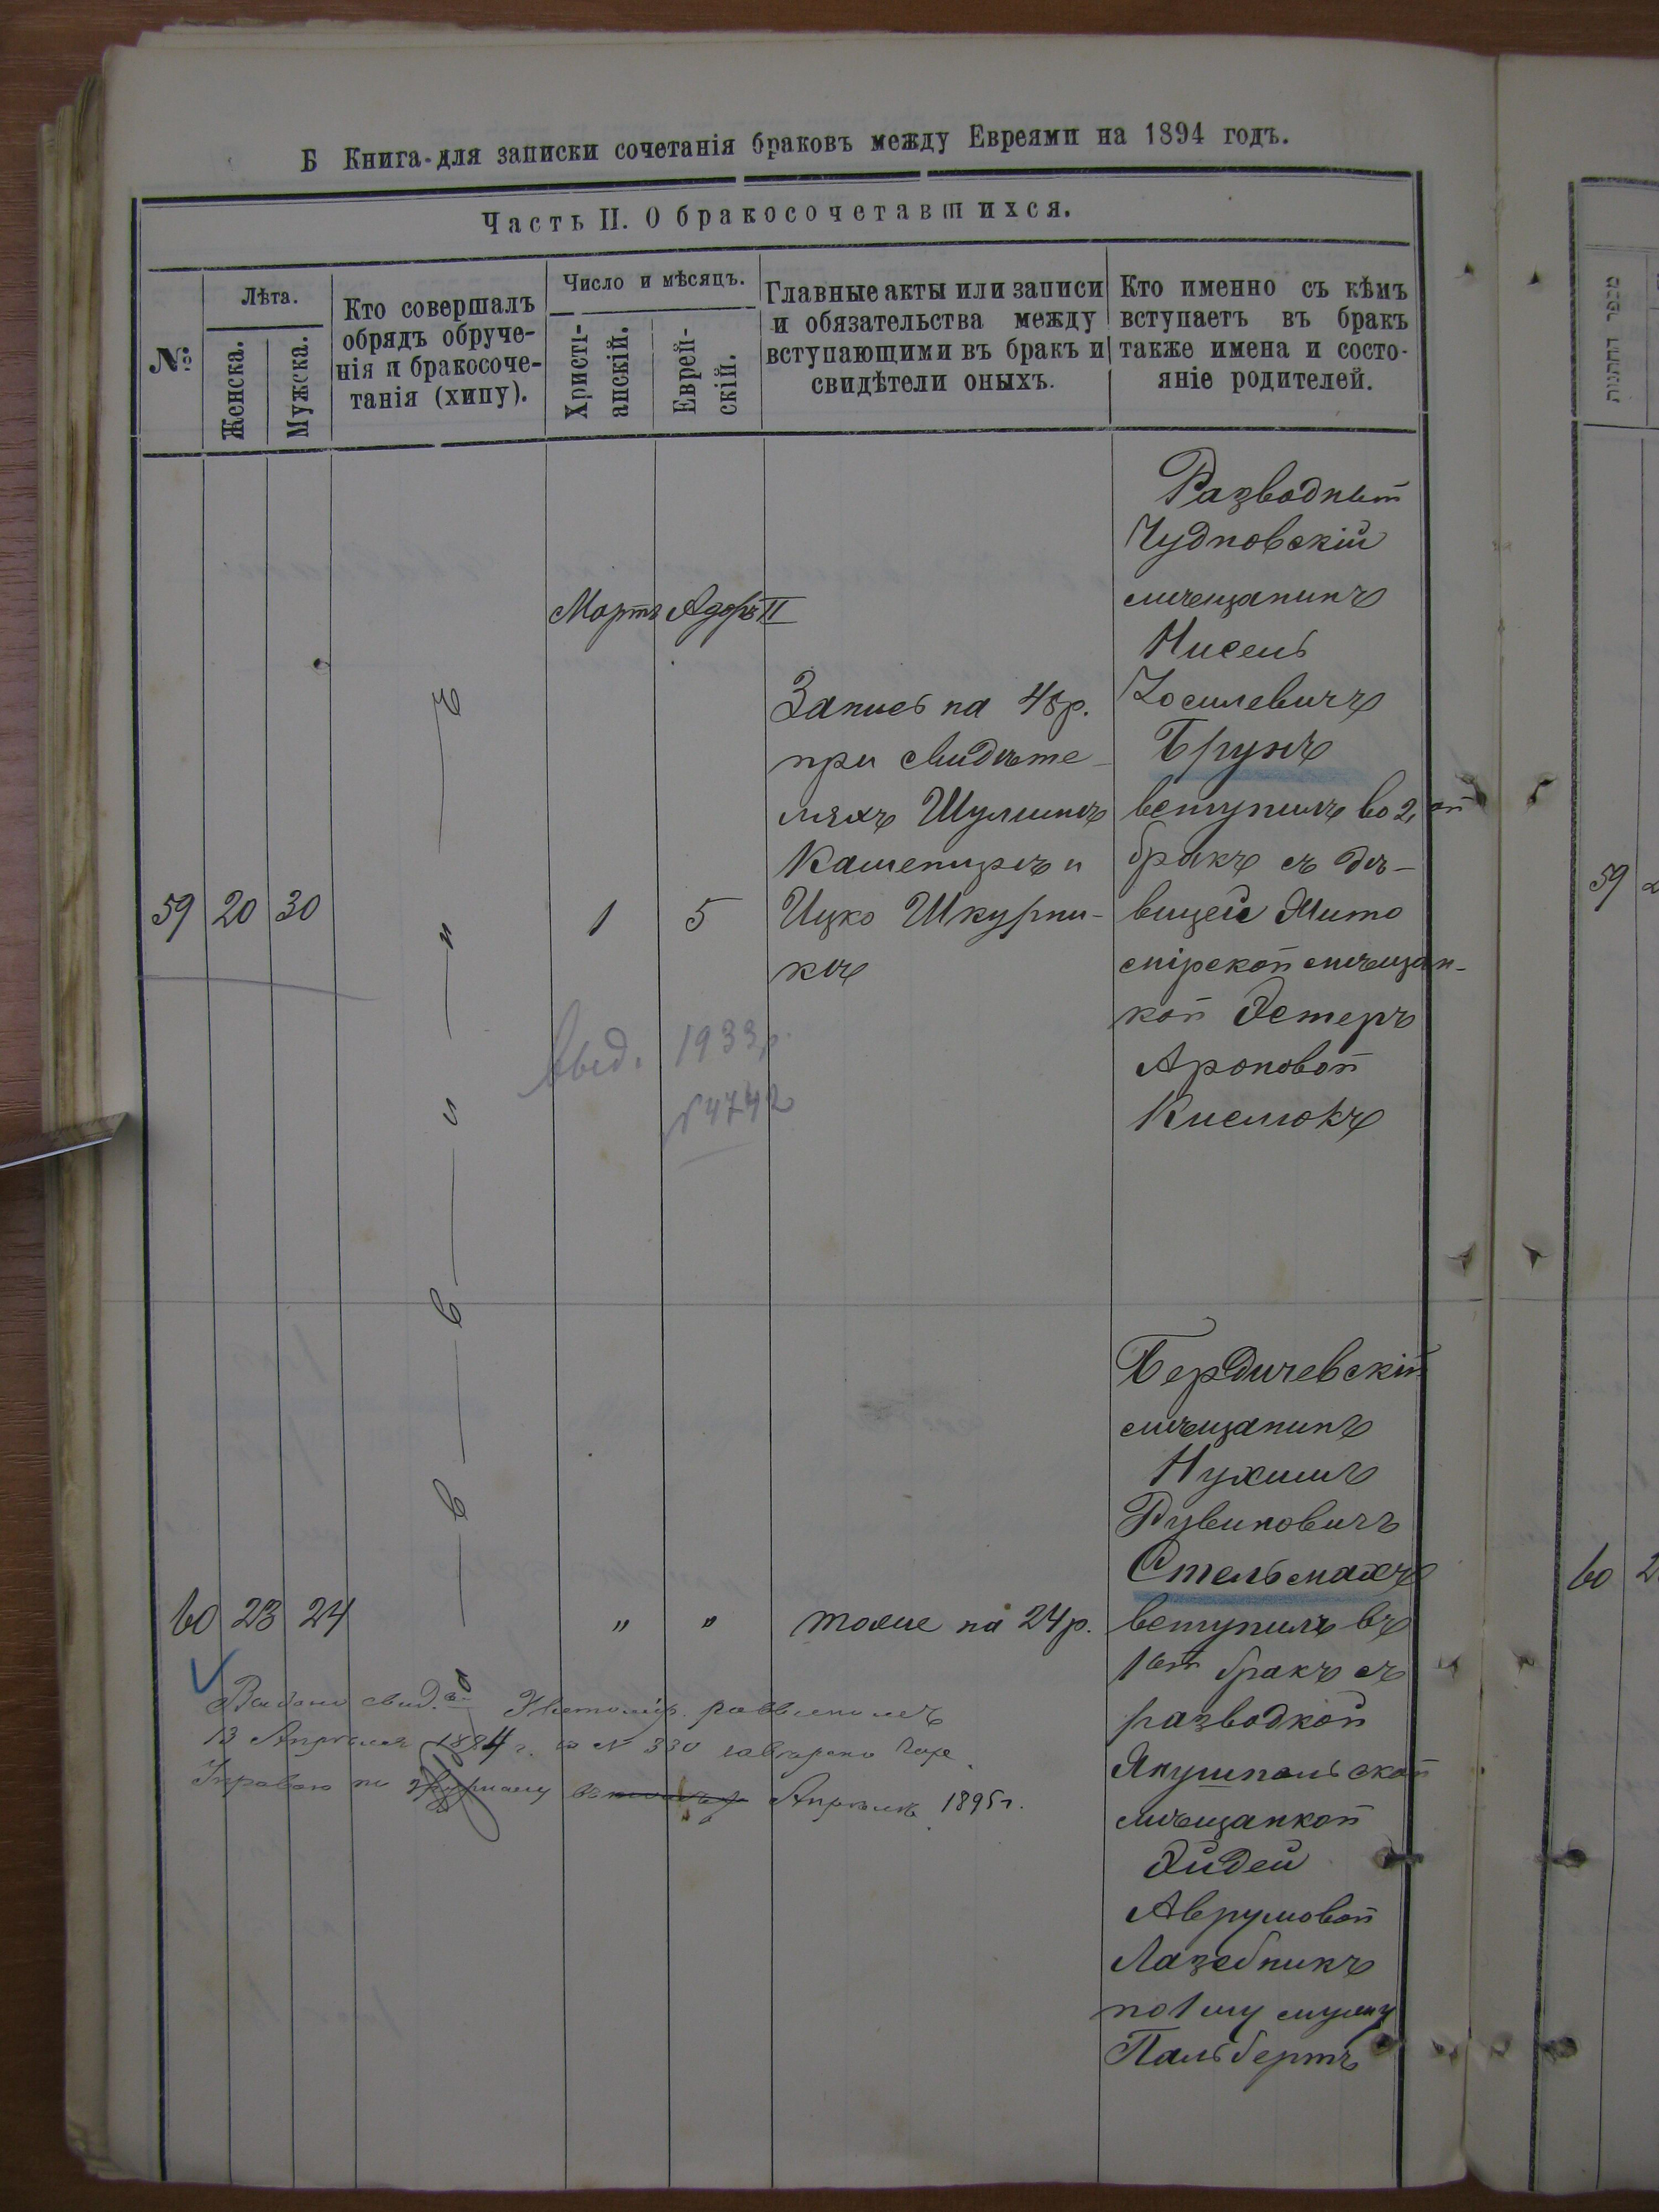 Б Книга для записки сочетанія браковъ между Евреями на 1894 годъ.
Часть II. О бракосочетавшихся.
№
Лѣта.
Женска.
Мужска.
Кто совершалъ
обрядъ обруче-
нія и бракосоче-
танія (хипу).
Число и мѣсяцъ.
Христі-
анскій.
Еврей-
скій.
Главные акты или записи
и обязательства между
вступающими въ бракъ и
свидѣтели оныхъ.
Кто именно съ кѣмъ
вступаетъ въ бракъ
также имена и состо-
яніе родителей.
Мартъ Адаръ II
59 20 30
1 5
Запись на 48 р.
при свидѣте-
ляхъ Шулимъ
Кашеницръ и
Ицко Шкурни-
къ
Разводный
Чудновскій
мѣщанинъ
Нисель
Іосилевичъ
Брунъ
вступилъ во 2, ой
бракъ съ дѣ-
вицей Жито
мірской мѣщан-
кой Эстеръ
Ароновой
Кислюкъ
выд. 1933 р.
№ 4742
60 23 24
" "
тоже на 24 р.
Бердичевскій
мѣщанинъ
Нухимъ
Рувиновичъ
Стельмахъ
вступилъ въ
1ый бракъ съ
разводкой
Янушпольской
мѣщанкой
Хайдей
Аврумовой
Лазебникъ
по 1 му мужу
Пальбертъ
Выдано свид. Житомір. раввиномъ
13 Апрѣля 1894 г. за № 330
Апрѣлѣ 1895 г.
מספר החתונות
59
60 2